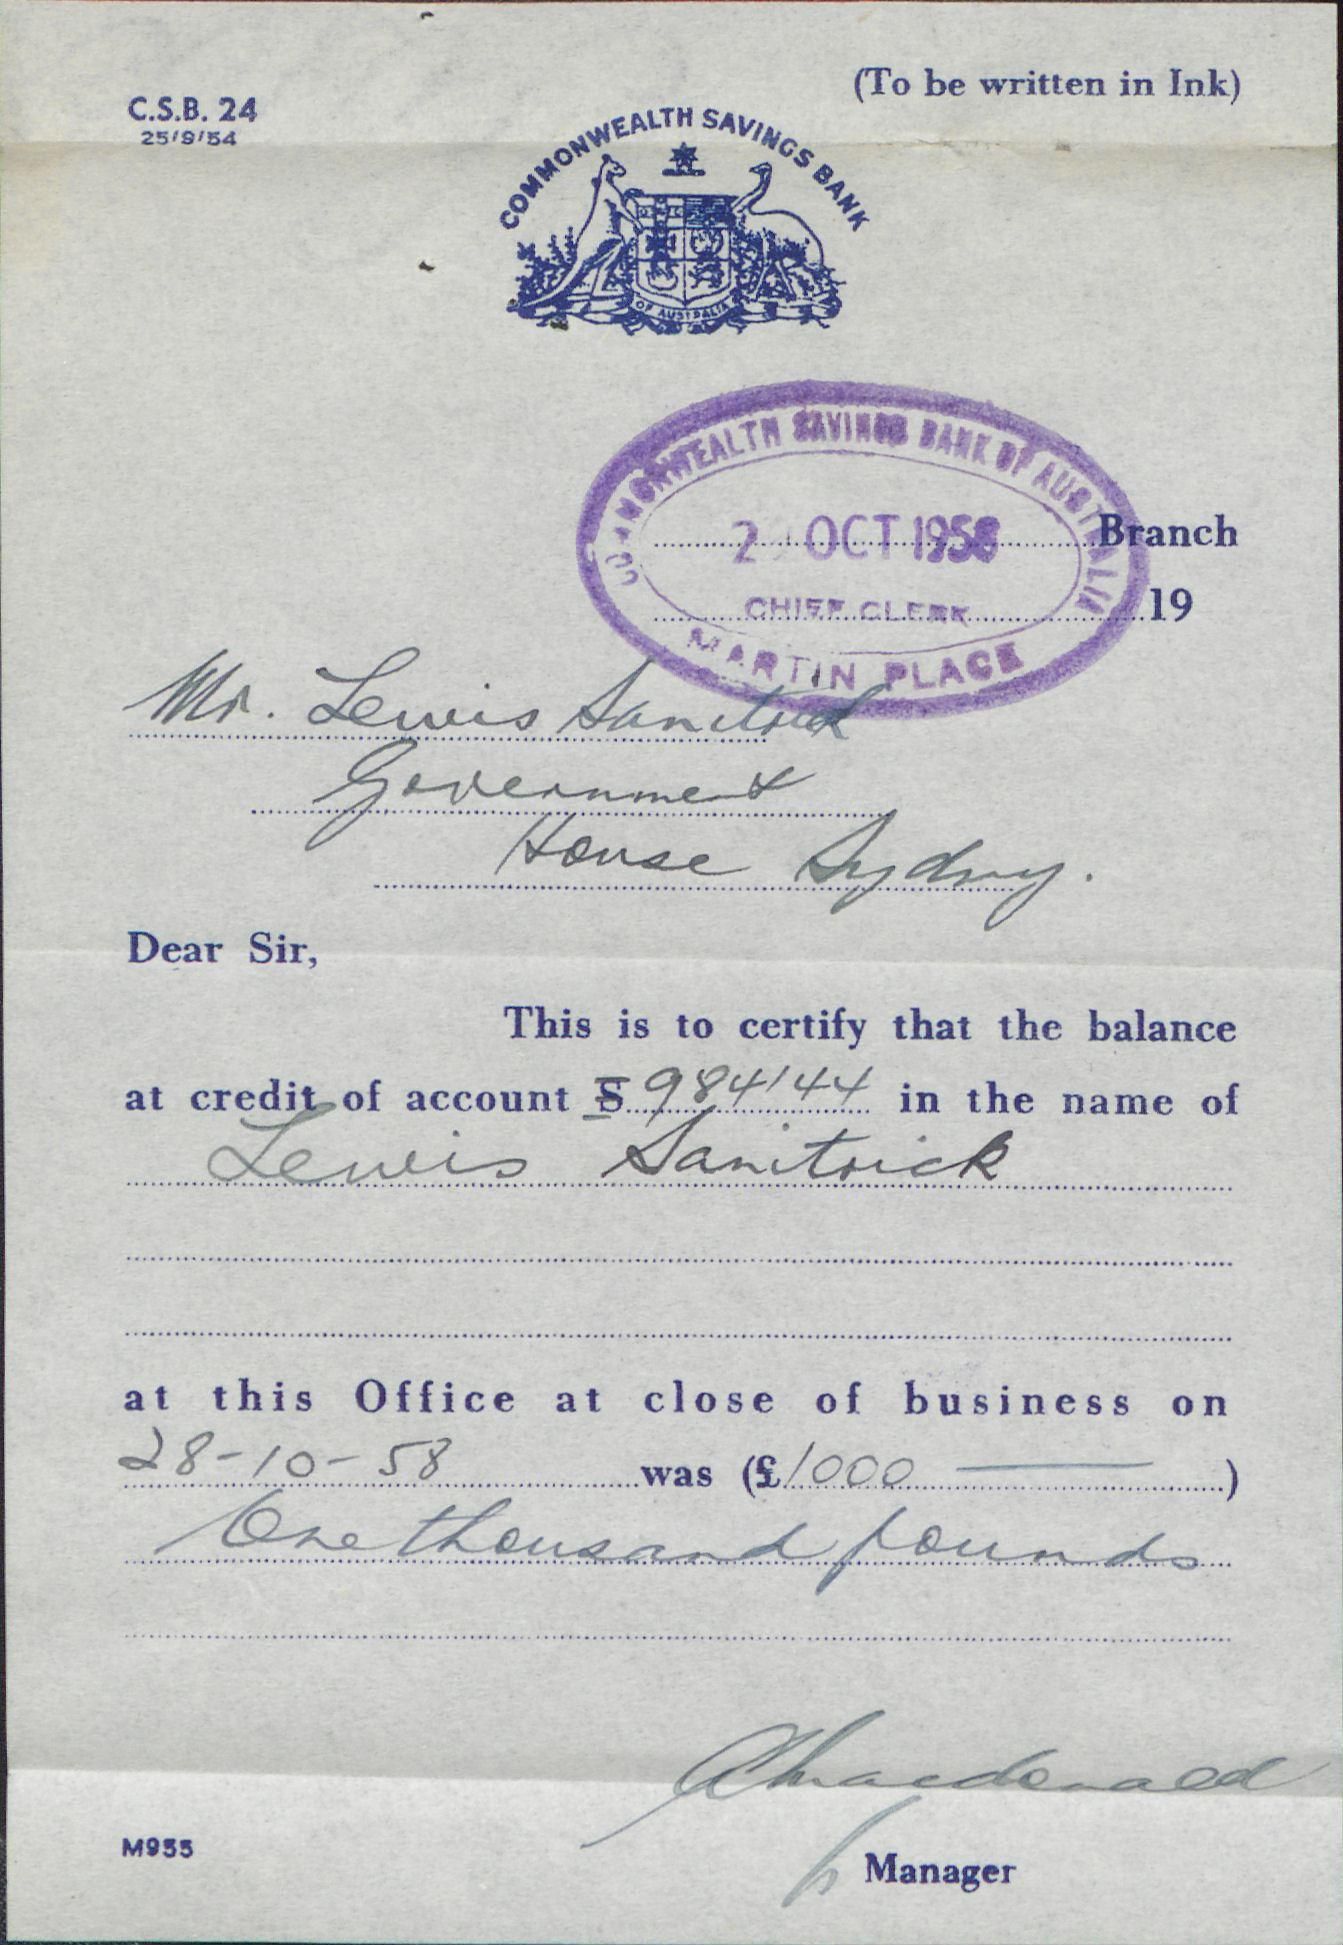 (To be written in Ink)
C.S.B. 24
25/9/54
COMMONWEALTH SAVINGS BANK
OF AUSTRALIA
COMMONWEALTH SAVINGS BANK OF AUSTRALIA
2 OCT 1958 Branch
CHIEF CLERK 19
MARTIN PLACE
Mr. Lewis Sanitrick
Government
House Sydney.
Dear Sir,
This is to certify that the balance
at credit of account S 984144 in the name of
Lewis Sanitrick
at this Office at close of business on
28-10-58 was (£1000 —)
One thousand pounds
Macdonald
M955
Manager